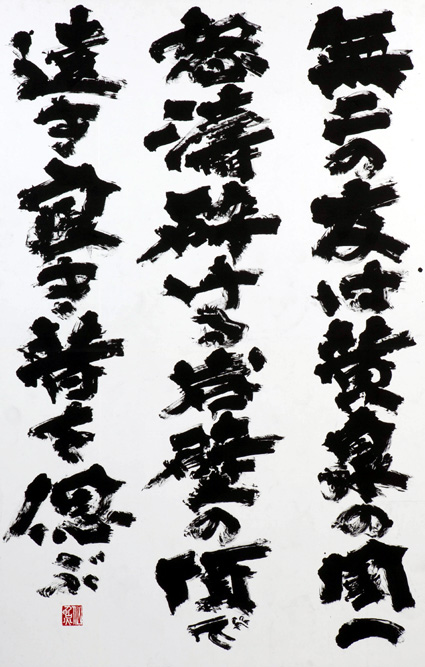 無二の友は黄泉の国へ
怒濤砕ける岩壁の頂で
遠き良き昔を偲ぶ